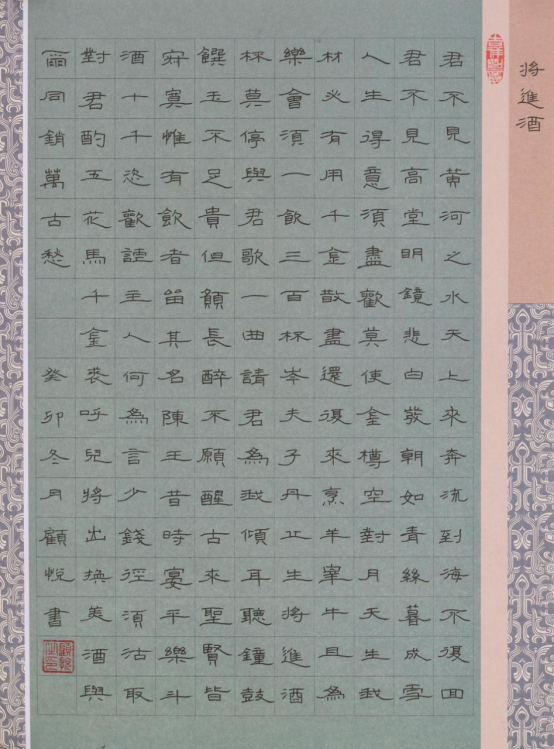 将進酒
君不見黄河之水天上來奔流到海不復回
君不見高堂明鏡悲白發朝如青絲暮成雪
人生得意須盡歡莫使金樽空對月天生我
材必有用千金散盡還復來烹羊宰牛且為
樂會須一飲三百杯岑夫子丹丘生将進酒
杯莫停與君歌一曲請君為我傾耳聽鐘鼓
饌玉不足貴但願長醉不願醒古來聖賢皆
寂寞惟有飲者留其名陳王昔時宴平樂斗
酒十千恣歡謔主人何為言少錢徑須沽取
對君酌五花馬千金裘呼兒将出換美酒與
爾同銷萬古愁 癸卯冬月顧悅書